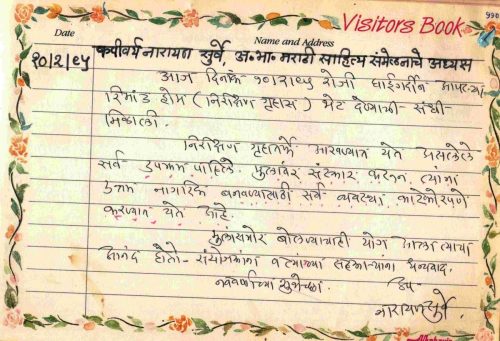 Visitors Book
990
Date
Name and Address
१०/२/९५
कवीवर्य नारायण सुर्वे, अ.भा. मराठी साहित्य संमेलनाचे अध्यक्ष
आज दिनांक १०/२/९५ रोजी घाईगर्दीत आपल्या
रिमांड होम (निरिक्षण गृहास) भेट देण्याची संधी
मिळाली.
निरिक्षण गृहातर्फे चालवण्यात येत असलेले
सर्व उपक्रम पाहिले. मुलांवर संस्कार करून, त्यांना
उत्तम नागरिक बनवण्यासाठी सर्व व्यवस्था काटेकोरपणे
करण्यात येत आहे.
मुलांसमोर बोलण्याचाही योग आला त्याचा
आनंद होतो - संयोजकांना व त्यांच्या सहकाऱ्यांना धन्यवाद.
नववर्षाच्या शुभेच्छा.
नारायण सुर्वे